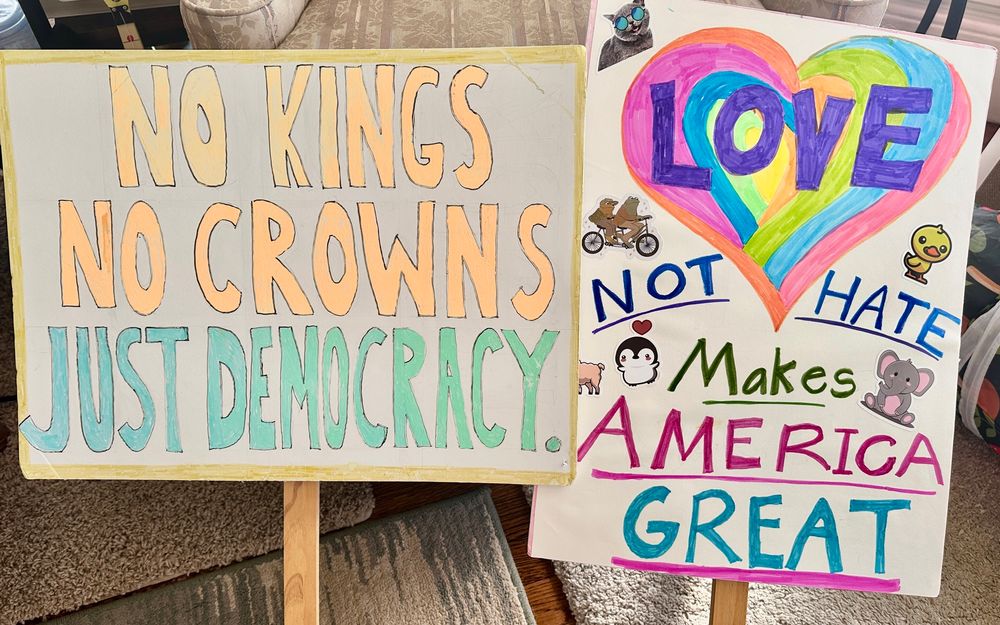 NO KINGS
NO CROWNS
JUST DEMOCRACY.
LOVE
NOT HATE
Makes
AMERICA
GREAT